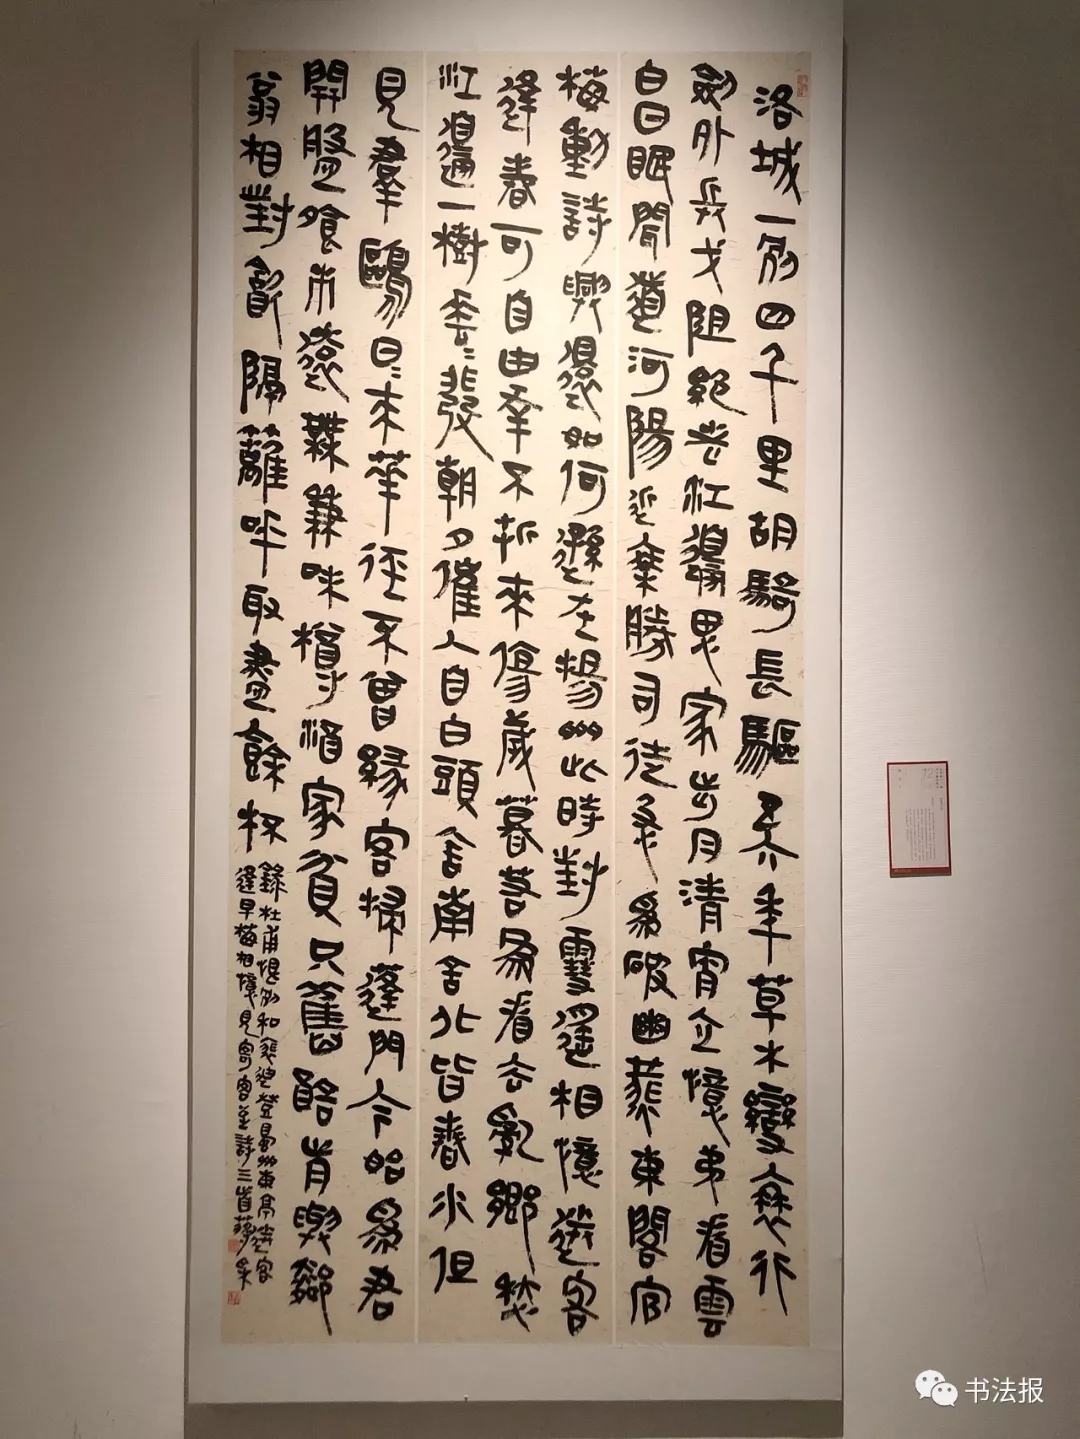 洛城一别四千里胡騎長驅五六年草木變衰行
劍外兵戈阻絕老江邊思家步月清宵立憶弟看雲
白日眠聞道河陽近乘勝司徒急為破幽燕東閣官
梅動詩興還如何遜在揚州此時對雪遙相憶送客
逢春可自由幸不折來傷歲暮若為看去亂鄉愁
江邊一樹垂〻發朝夕催人自白頭舍南舍北皆春水但
見羣鷗日〻來華徑不曾緣客掃蓬門今始為君
開盤飧市遠無兼味樽酒家貧只舊醅肯與鄰
翁相對飲隔籬呼取盡餘杯
錄杜甫恨别和裴迪登蜀州東亭送客
逢早梅相憶見寄客至詩三首
书法报